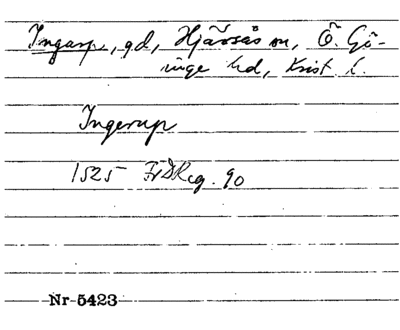 Ingarp, gd, Hjärsås sn, Ö. Gö-
inge hd, Krist. l.
Ingerup
1525 FrDReg. 90
Nr 5423